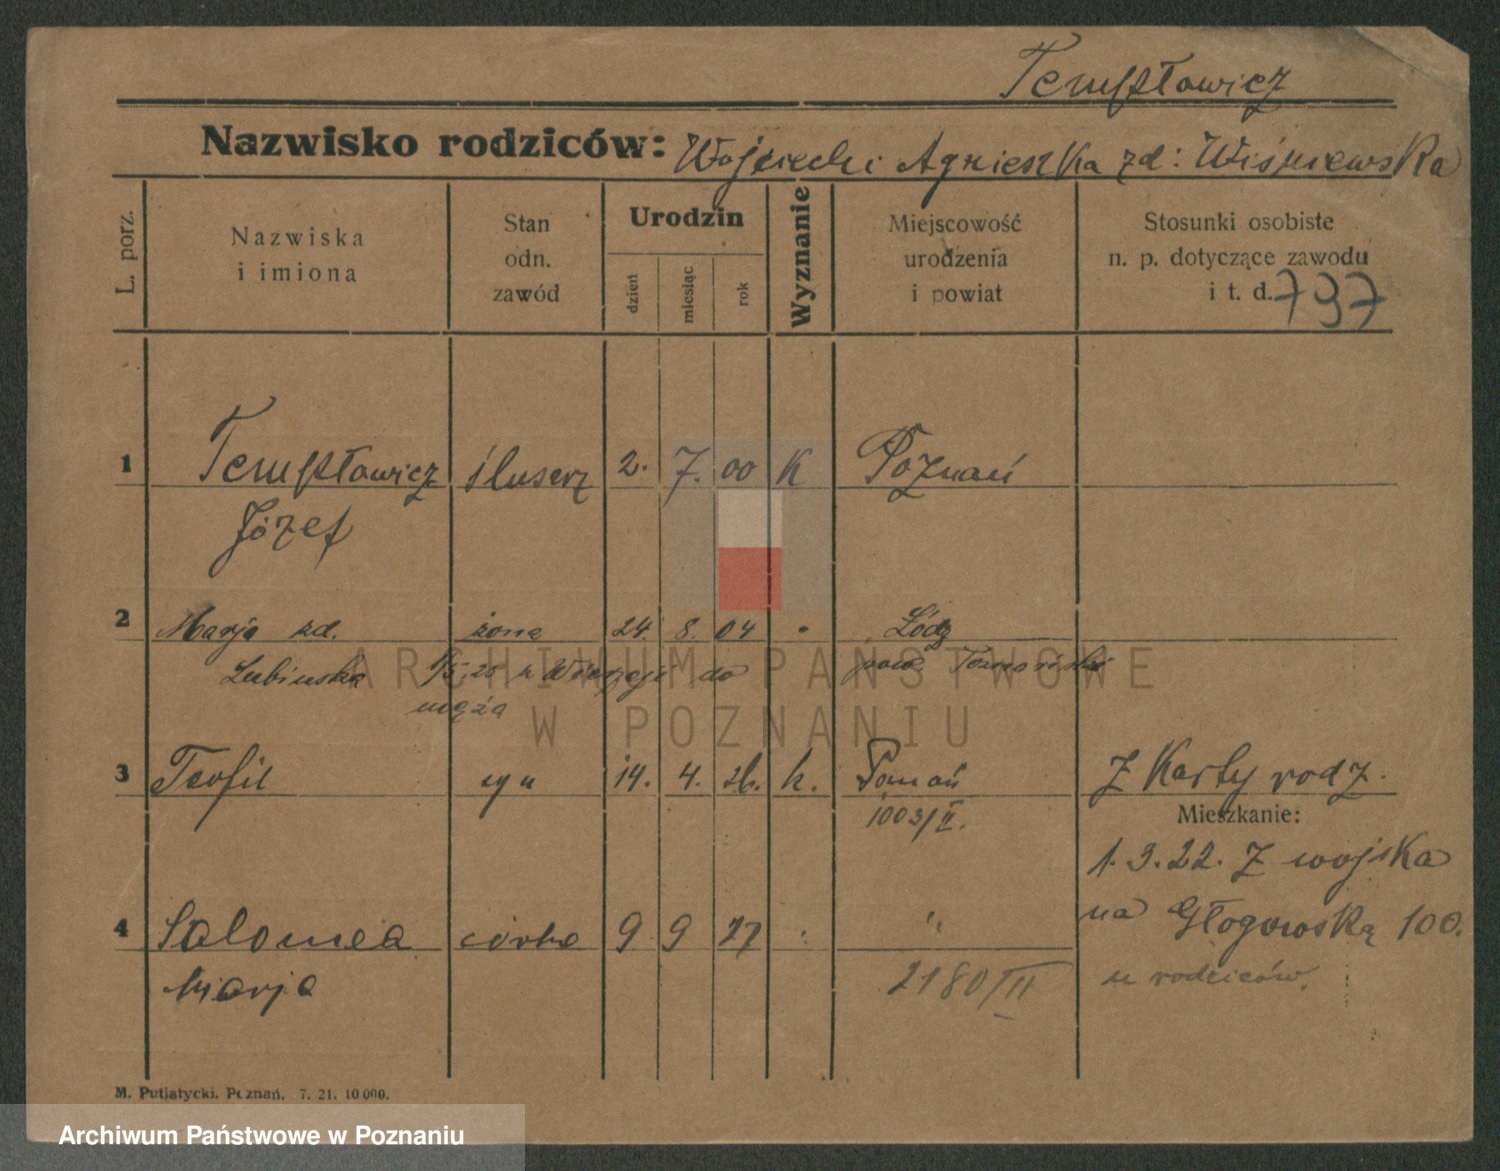 Tempłowicz
Nazwisko rodziców: Wojciech i Agnieszka zd: Wiśniewska
L. porz.
Nazwiska i imiona
Stan odn. zawód
Urodzin
dzień
miesiąc
rok
Wyznanie
Miejscowość urodzenia i powiat
Stosunki osobiste
n. p. dotyczące zawodu
i t. d. 797
1 Tempłowicz ślusarz 2. 7. 00 K Poznań
Józef
2 Marja zd. żona 24. 8. 04 Łódz
Lubińska 1/5.25 z do pow.
męża
3 Teofil syn 14. 4. 26. k. Poznań Z Karty rodz.
1003/II.
Mieszkanie:
1.3.22. Z wojska
na Głogowską 100.
u rodziców.
4 Salomea córka 9 9 27 "
Marja 2180/II
M. Putiatycki. Poznań. 7. 21. 10 000.
ARCHIWUM PAŃSTWOWE
W POZNANIU
Archiwum Państwowe w Poznaniu